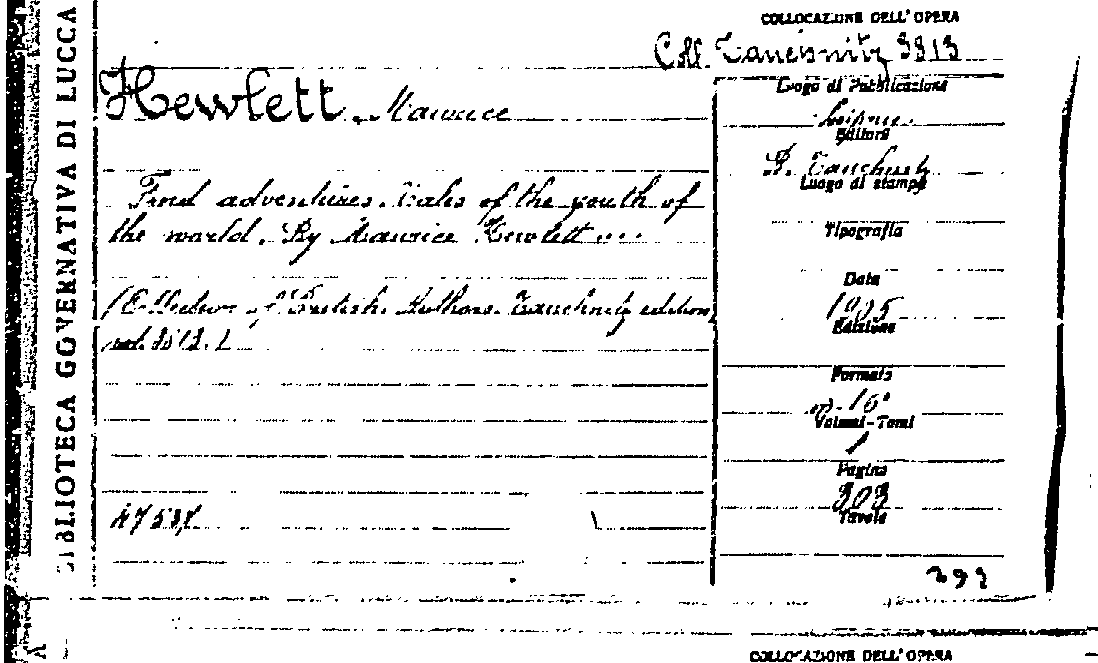 BIBLIOTECA GOVERNATIVA DI LUCCA
COLLOCAZIONE DELL'OPERA
Coll. Tauchnitz 3813
Hewlett Maurice
Fond adventures. Tales of the youth of
the world. By Maurice Hewlett...
(Collection of British Authors. Tauchnitz edition
vol.
Luogo di Pubblicazione
Leipzig
Editore
B. Tauchnitz
Luogo di stampa
Tipografia
Data
1905
Edizione
Formato
in-16°
Volumi-Tomi
1
Pagine
303
Tavole
COLLOCAZIONE DELL'OPERA